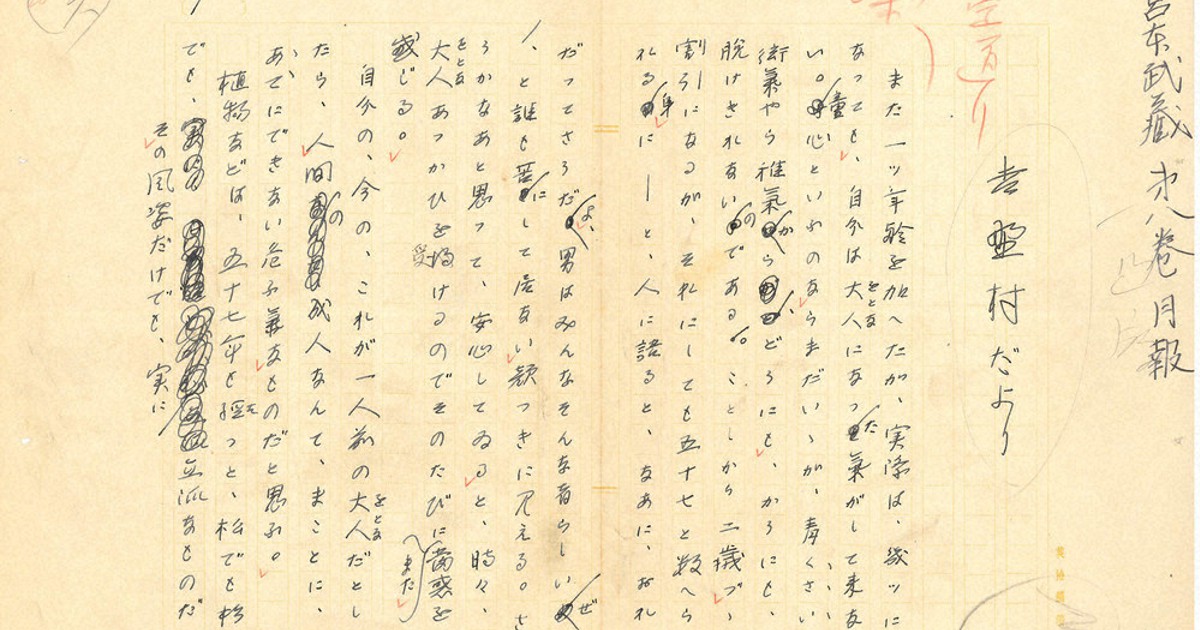 宮本武藏 第八巻月報
吉野村だより
また一ツ年齢を加へたが、実際は、幾ツに
なっても、自分は大人になった氣がして来な
い。童心といふのならまだいゝが、青くさい
衒氣やら稚氣からどうにも、かうにも、
脱けきれないのである。ことしから二歳づゝ
割引になるが、それにしても五十七と数へら
れる身に――と、人に語ると、なあに、おれ
だってさうだよ、男はみんなそんな者らしいぜ
、と誰も苦にして居ない顔つきに見える。さ
うかなあと思って、安心してゐると、時々、
大人あつかひを受けるのでそのたびにまた
感じる。
自分の、今の、これが一人前の大人だとし
たら、人間の成人なんて、まことに、
あてにできない危ふ気なものだと思ふ。
植物などは、五十七年も経つと、松でも杉
でも、立派なものだ
その風姿だけでも、実に